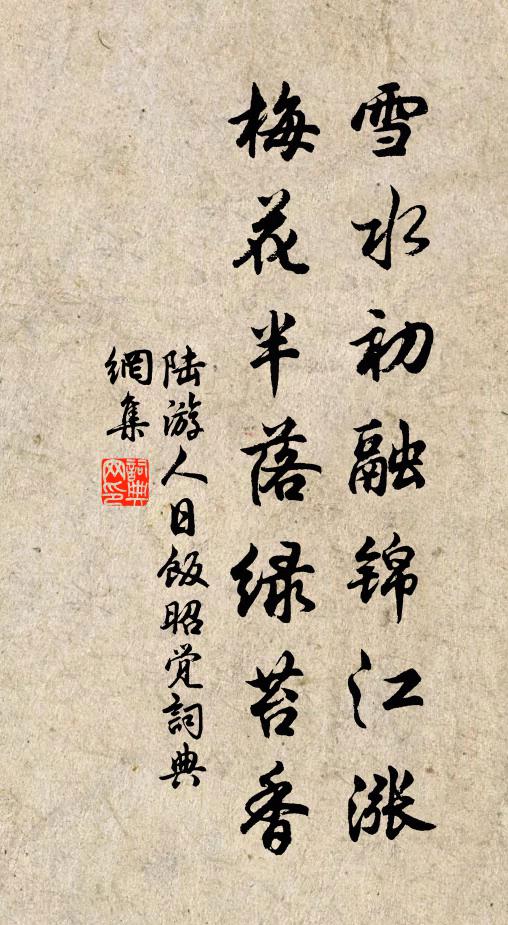 雪水初融锦江涨
梅花半落绿苔香
陆游人日飯昭覚詞典
網集
詞典网印